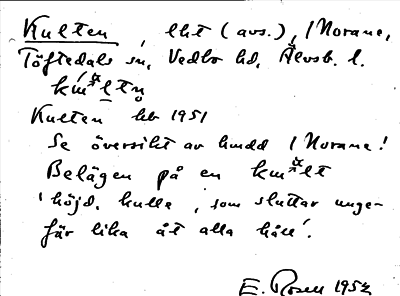 Kulten, lht (avs.), 1 Norane,
Töftedals sn, Vedbo hd, Älvsb. l.
Kulten hb 1951
Se översikt av hmdd 1 Norane!
Belägen på en
'höjd, kulle, som sluttar unge-
fär lika åt alla håll'.
E. Rosell 1952